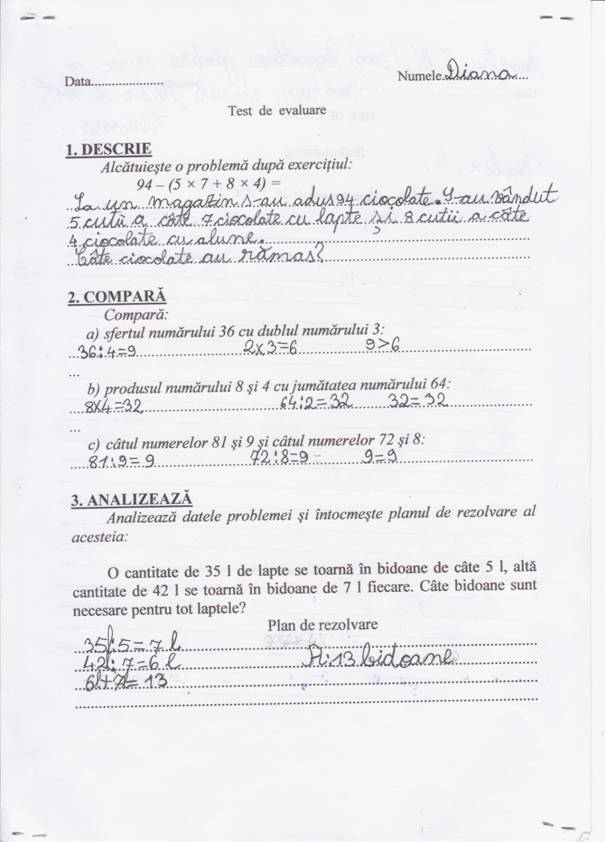 Data......................
Numele.Diana....
Test de evaluare
1. DESCRIE
Alcătuieşte o problemă după exerciţiul:
94 – (5 × 7 + 8 × 4) =
La un magazin s-au adus 94 ciocolate. S-au vândut
5 cutii a câte 7 ciocolate cu lapte și 8 cutii a câte
4 ciocolate cu alune.
Câte ciocolate au rămas?
2. COMPARĂ
Compară:
a) sfertul numărului 36 cu dublul numărului 3:
36:4=9 2x3=6 9>6
...
b) produsul numărului 8 şi 4 cu jumătatea numărului 64:
8x4=32 64:2=32 32=32
...
c) câtul numerelor 81 şi 9 şi câtul numerelor 72 şi 8:
81:9=9 72:8=9 9=9
3. ANALIZEAZĂ
Analizează datele problemei şi întocmeşte planul de rezolvare al
acesteia:
O cantitate de 35 l de lapte se toarnă în bidoane de câte 5 l, altă
cantitate de 42 l se toarnă în bidoane de 7 l fiecare. Câte bidoane sunt
necesare pentru tot laptele?
Plan de rezolvare
35l:5=7 l
42l:7=6 l R:13 bidoane
6l+7l=13